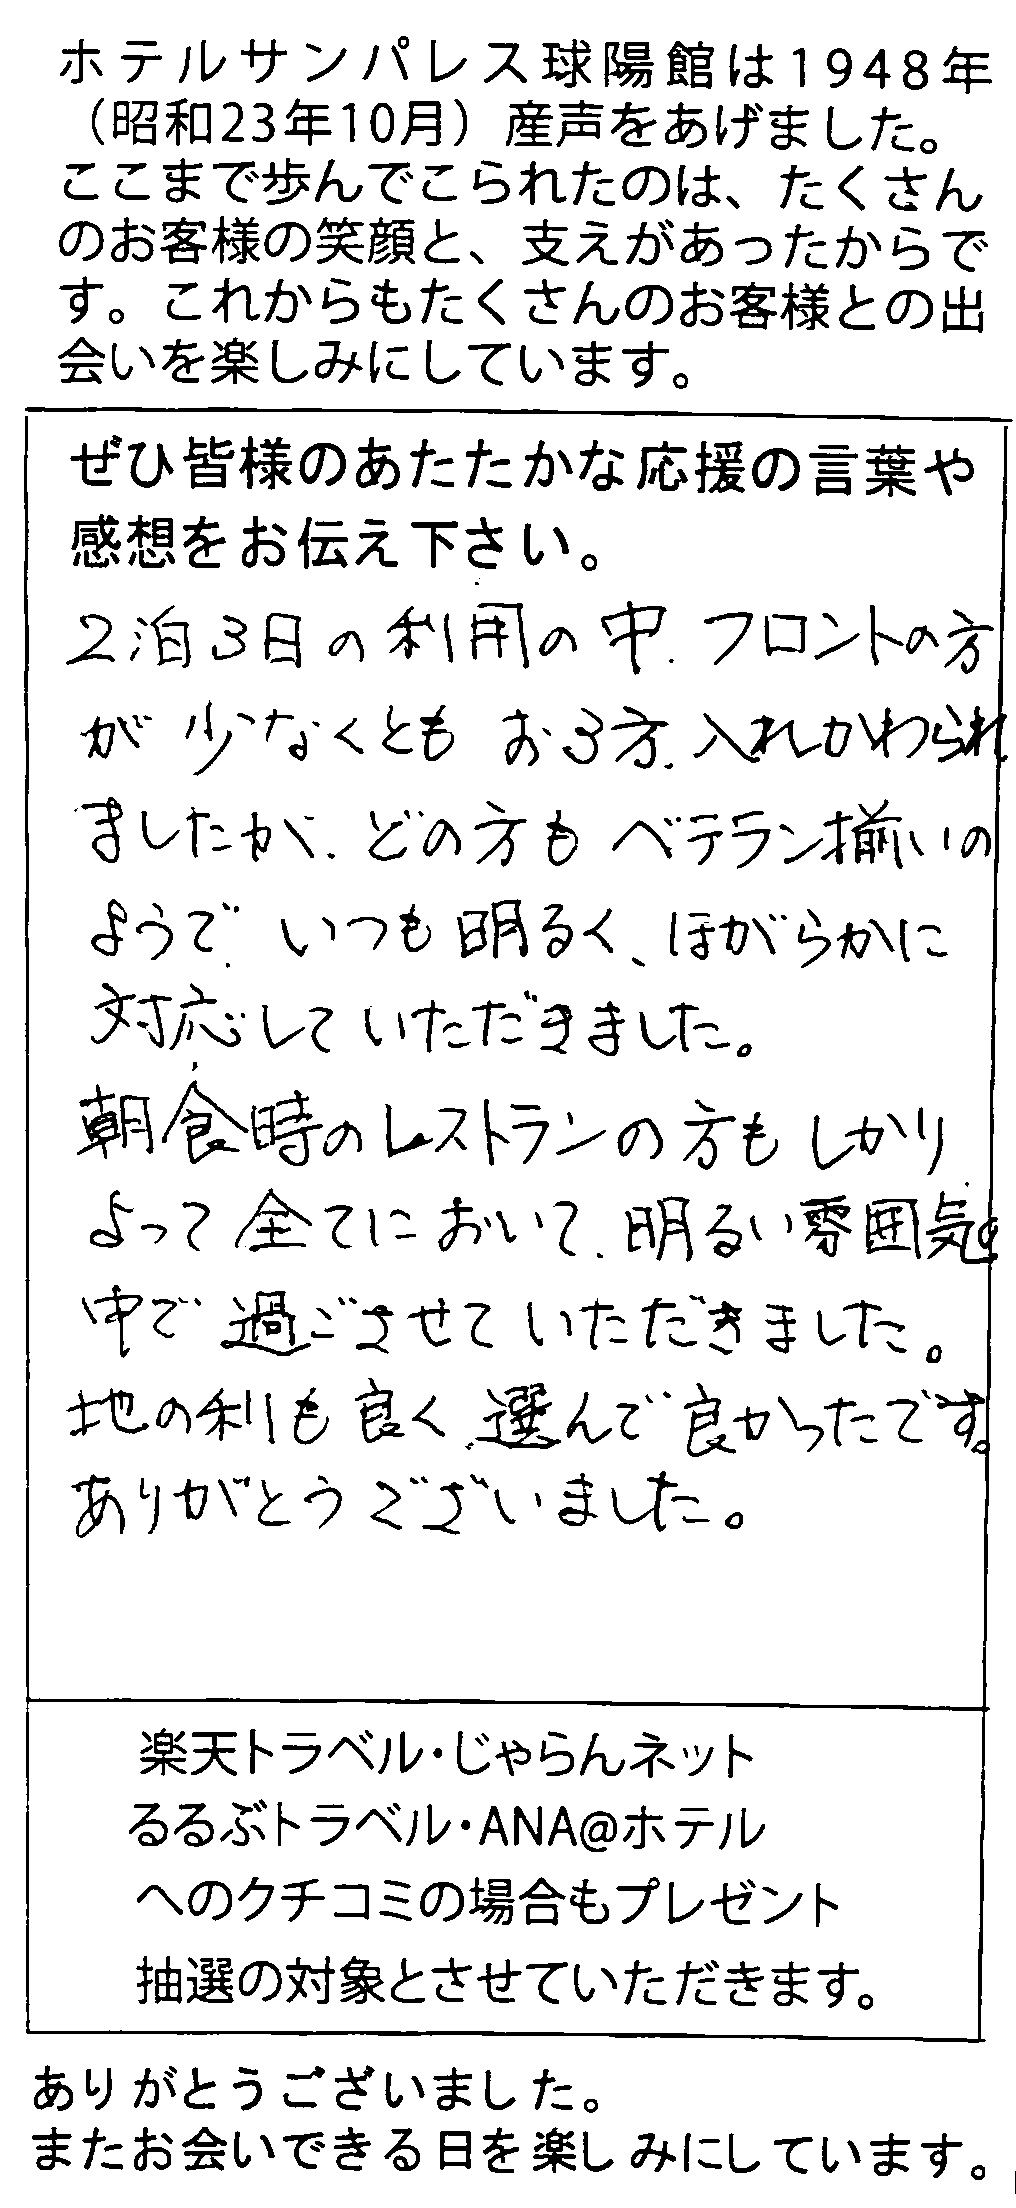 ホテルサンパレス球陽館は1948年
（昭和23年10月）産声をあげました。
ここまで歩んでこられたのは、たくさん
のお客様の笑顔と、支えがあったからで
す。これからもたくさんのお客様との出
会いを楽しみにしています。
ぜひ皆様のあたたかな応援の言葉や
感想をお伝え下さい。
2泊3日の利用の中、フロントの方
が少なくともお3方、入れかわられ
ましたが、どの方もベテラン揃いの
ようで、いつも明るく、ほがらかに
対応していただきました。
朝食時のレストランの方もしかり
よって全てにおいて、明るい雰囲気の
中で過ごさせていただきました。
地の利も良く、選んで良かったです。
ありがとうございました。
楽天トラベル・じゃらんネット
るるぶトラベル・ANA@ホテル
へのクチコミの場合もプレゼント
抽選の対象とさせていただきます。
ありがとうございました。
またお会いできる日を楽しみにしています。